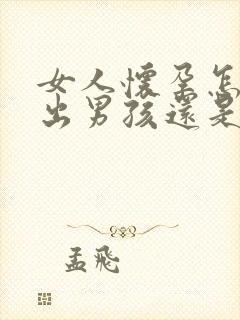 女人懷孕怎
出男孩還是
孟飛